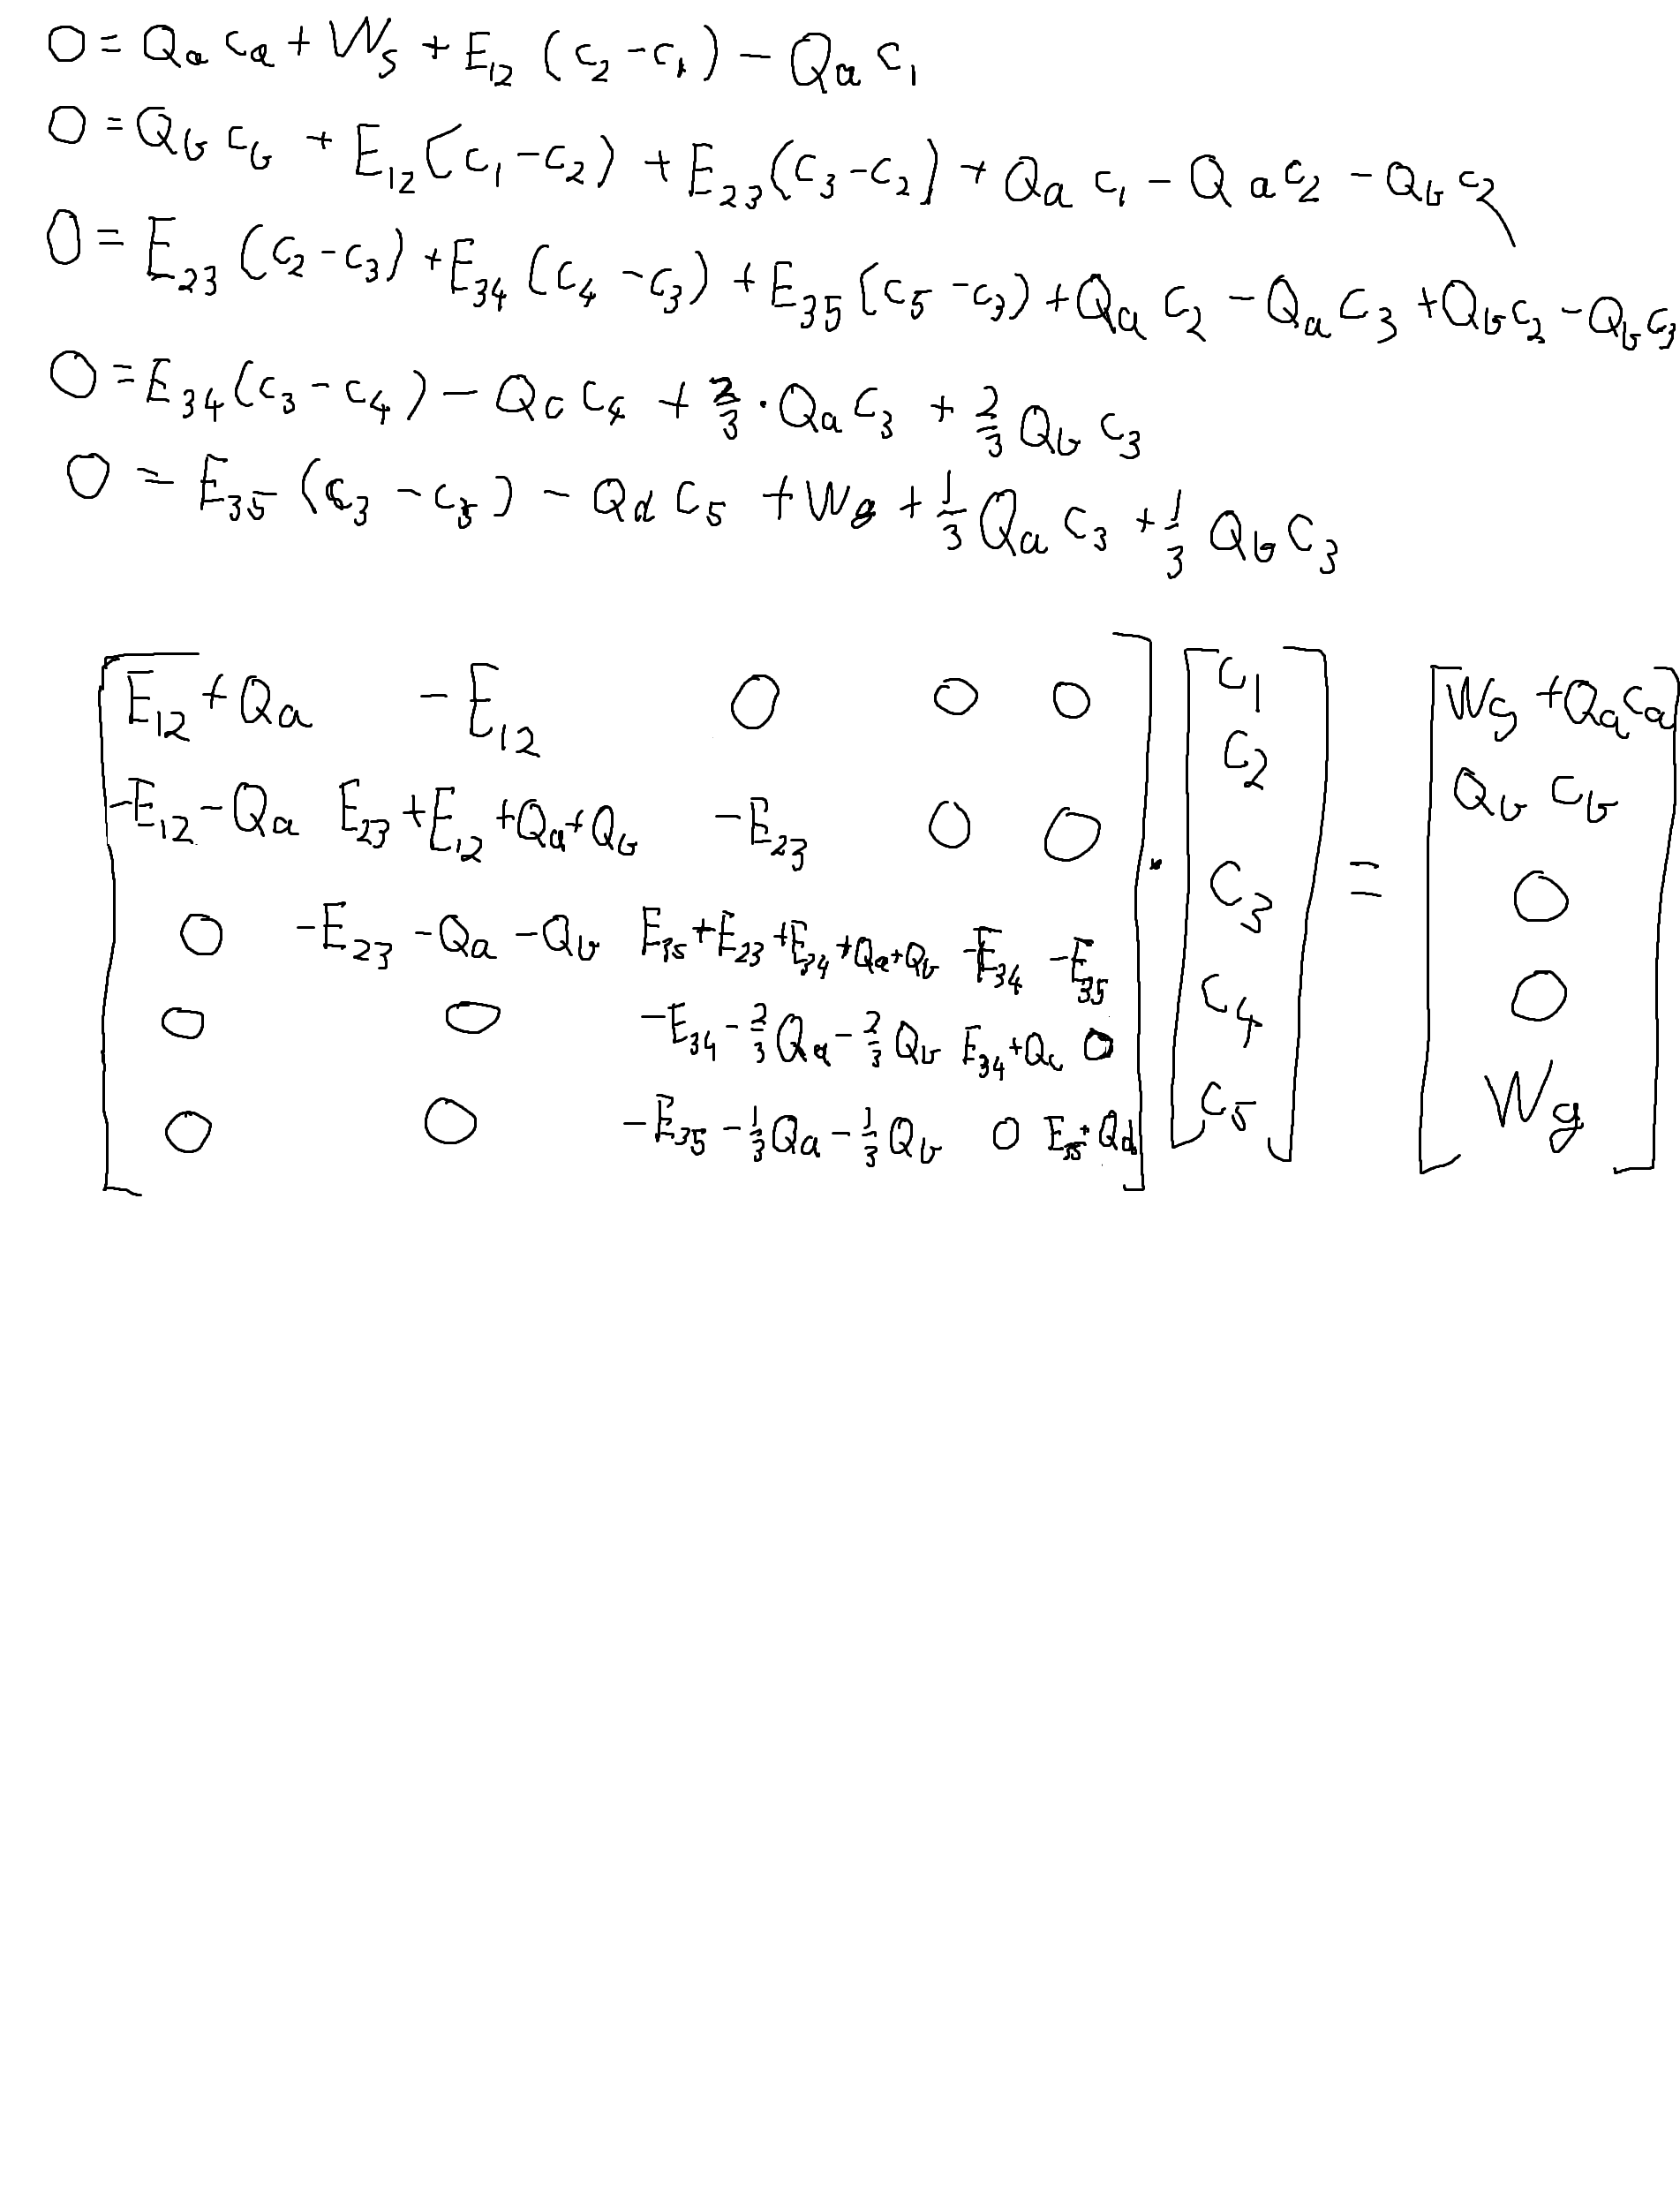 0 = Qₐ cₐ + Wₛ + E₁₂ (c₂ - c₁) - Qₐ c₁
0 = Q_b c_b + E₁₂ (c₁ - c₂) + E₂₃ (c₃ - c₂) + Qₐ c₁ - Qₐ c₂ - Q_b c₂
0 = E₂₃ (c₂ - c₃) + E₃₄ (c₄ - c₃) + E₃₅ (c₅ - c₃) + Qₐ c₂ - Qₐ c₃ + Q_b c₂ - Q_b c₃
0 = E₃₄ (c₃ - c₄) - Q_c c₄ + 2/3 · Qₐ c₃ + 2/3 Q_b c₃
0 = E₃₅ (c₃ - c₅) - Q_d c₅ + W_g + 1/3 Qₐ c₃ + 1/3 Q_b c₃
[ E₁₂ + Qₐ   -E₁₂   0   0   0 ] [ c₁ ] [ Wₛ + Qₐ cₐ ]
[ -E₁₂ - Qₐ   E₂₃ + E₁₂ + Qₐ + Q_b   -E₂₃   0   0 ] [ c₂ ] [ Q_b c_b ]
[ 0   -E₂₃ - Qₐ - Q_b   E₃₅ + E₂₃ + E₃₄ + Qₐ + Q_b   -E₃₄   -E₃₅ ] · [ c₃ ] = [ 0 ]
[ 0   0   -E₃₄ - 2/3 Qₐ - 2/3 Q_b   E₃₄ + Q_c   0 ] [ c₄ ] [ 0 ]
[ 0   0   -E₃₅ - 1/3 Qₐ - 1/3 Q_b   0   E₃₅ + Q_d ] [ c₅ ] [ W_g ]